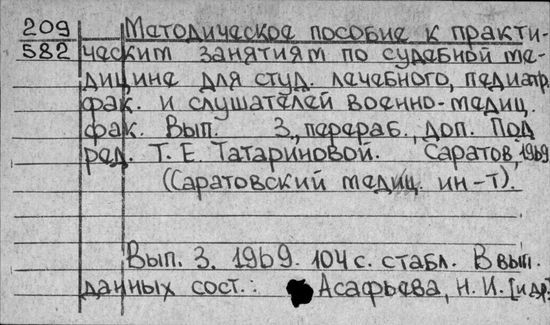 209 Методическое пособие к практи-
582 ческим занятиям по судебной ме-
дицине для студ. лечебного, педиатр.
фак. и слушателей военно-медиц.
фак. Вып. 3., перераб., доп. Под
ред. Т. Е. Татариновой. Саратов, 1969.
(Саратовский медиц. ин-т).
Вып. 3. 1969. 104 с. стабл. В вып.
данных сост.: Асафьева, Н. И. [и др.